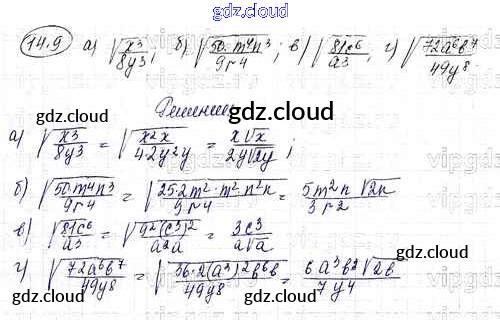 gdz.cloud
14.9 а) √(x³/8y³); б) √(50·m⁴n³/9r⁴); в) √(81c⁶/a³); г) √(72a⁶b⁷/49y⁸)
Решение
gdz.cloud
а) √(x³/8y³) = √(x²x/42y²y) = x√x/2y√2y;
б) √(50·m⁴n³/9r⁴) = √(25·2m²·m²n²n/9r⁴) = 5m²n√2n/3r²
в) √(81c⁶/a³) = √(9²(c³)²/a²a) = 9c³/a√a
г) √(72a⁶b⁷/49y⁸) = √(36·2(a³)²b⁶b/49y⁸) = 6a³b³√2b/7y⁴
gdz.cloud
gdz.cloud
gdz.cloud